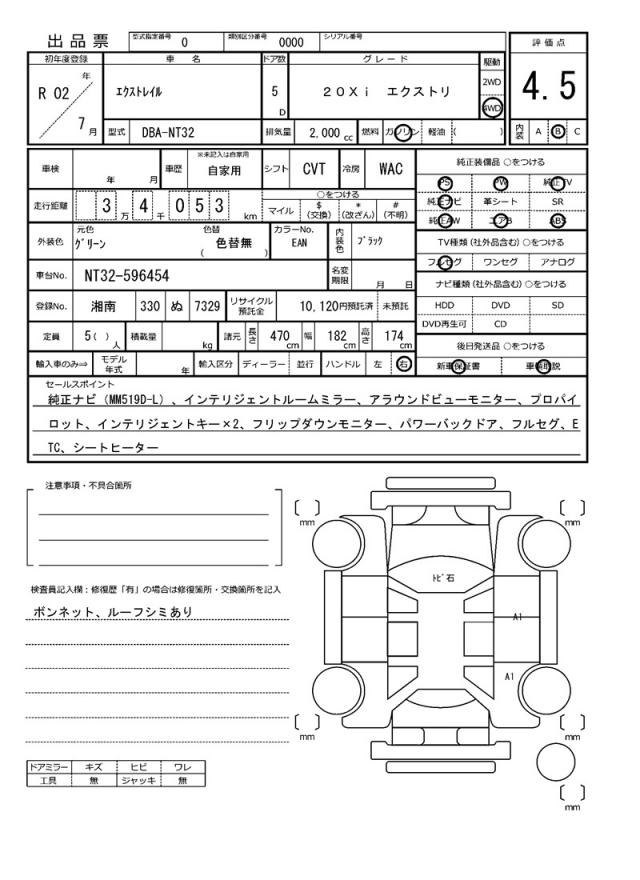 出品票 型式指定番号 0 類別区分番号 0000 シリアル番号
評価点
4.5
内装 A B C
初年度登録 車名 ドア数 グレード 駆動
R 02 年 7 月 エクストレイル 5 D 20Xi エクストリ 2WD 4WD
型式 DBA-NT32 排気量 2,000 cc 燃料 ガソリン 軽油 ( )
車検 年 月 車歴 ※未記入は自家用 自家用 シフト CVT 冷房 WAC
走行距離 3 万 4 千 0 5 3 km ○をつける
マイル $ (交換) * (改ざん) # (不明)
外装色 元色 グリーン 色替 ( 色替無 ) カラーNo. EAN 内装色 ブラック
車台No. NT32-596454 名変期限 月 日
登録No. 湘南 330 ぬ 7329 リサイクル預託金 10,120円預託済 未預託
定員 5( ) 人 積載量 kg 諸元 長さ 470 cm 幅 182 cm 高さ 174 cm
輸入車のみ⇒ モデル年式 年 輸入区分 ディーラー 並行 ハンドル 左 右
純正装備品 ○をつける
PS PW 純正TV
純正ナビ 革シート SR
純正AW エアB ABS
TV種類(社外品含む)○をつける
フルセグ ワンセグ アナログ
ナビ種類(社外品含む)○をつける
HDD DVD SD
DVD再生可 CD
後日発送品 ○をつける
新車保証書 車輌取説
セールスポイント
純正ナビ(MM519D-L)、インテリジェントルームミラー、アラウンドビューモニター、プロパイ
ロット、インテリジェントキー×2、フリップダウンモニター、パワーバックドア、フルセグ、E
TC、シートヒーター
注意事項・不具合箇所
検査員記入欄:修復歴「有」の場合は修復箇所・交換箇所を記入
ボンネット、ルーフシミあり
ドアミラー キズ ヒビ ワレ
工具 無 ジャッキ 無
mm
mm
トビ石
A1
A1
mm
mm
mm